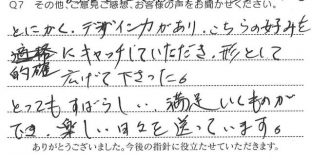 Q7 その他、ご意見ご感想、お客様の声をお聞かせください。
とにかく、デザイン力があり、こちらの好みを
的確にキャッチしていただき、形として
広げて下さった。
とってもすばらしい、満足いくものが
でき、楽しい日々を送っています。
ありがとうございました。今後の指針に役立たせていただきます。